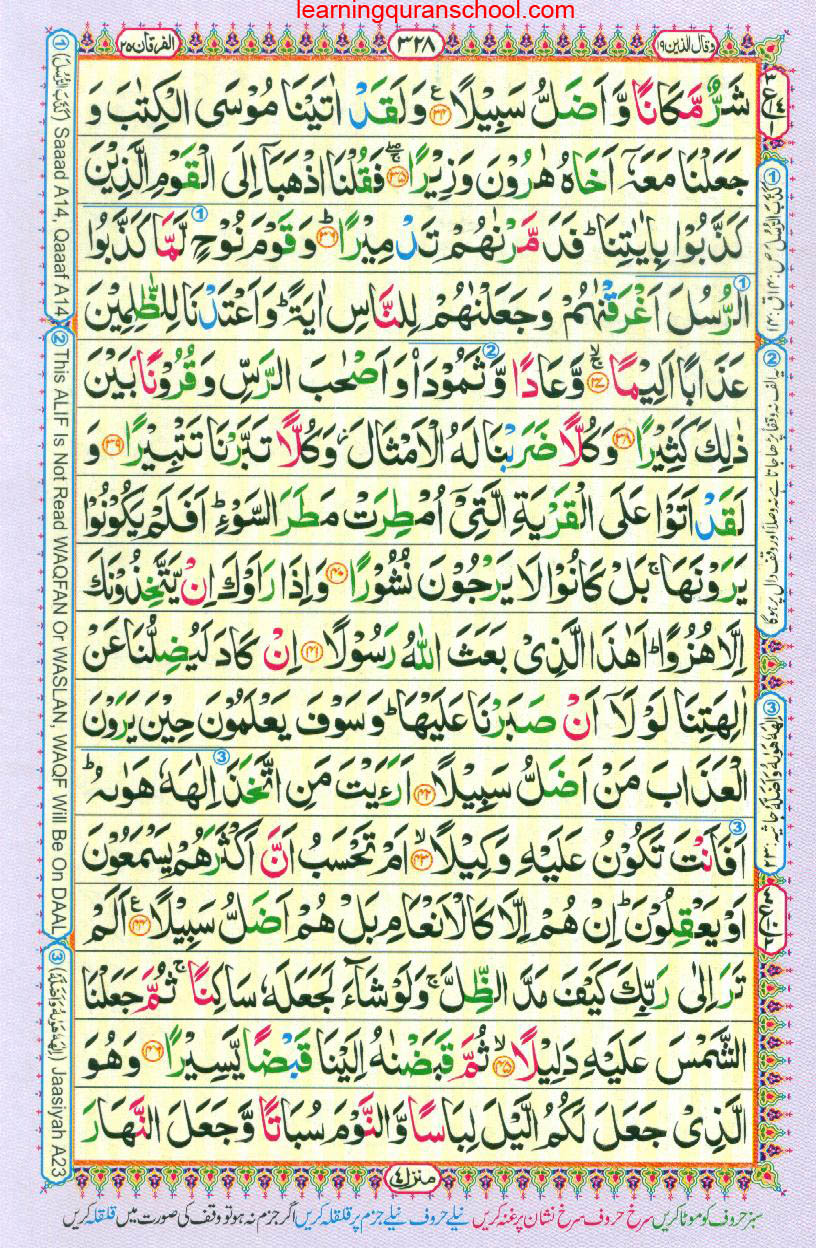 learningquranschool.com
وقال الذین ١٩
٣٢٨
الفرقان ٢٥
شَرٌّ مَّكَانًا وَّ اَضَلُّ سَبِیْلًا ﴿٣٤﴾ وَ لَقَدْ اٰتَیْنَا مُوْسَى الْكِتٰبَ وَ
جَعَلْنَا مَعَهٗۤ اَخَاهُ هٰرُوْنَ وَزِیْرًا ﴿٣٥﴾ فَقُلْنَا اذْهَبَاۤ اِلَى الْقَوْمِ الَّذِیْنَ
كَذَّبُوْا بِاٰیٰتِنَا ؕ فَدَمَّرْنٰهُمْ تَدْمِیْرًا ﴿٣٦﴾ ؕ وَ قَوْمَ نُوْحٍ لَّمَّا كَذَّبُوا
الرُّسُلَ اَغْرَقْنٰهُمْ وَ جَعَلْنٰهُمْ لِلنَّاسِ اٰیَةً ؕ وَ اَعْتَدْنَا لِلظّٰلِمِیْنَ
عَذَابًا اَلِیْمًا ﴿٣٧﴾ وَّ عَادًا وَّ ثَمُوْدَا۟ وَ اَصْحٰبَ الرَّسِّ وَ قُرُوْنًۢا بَیْنَ
ذٰلِكَ كَثِیْرًا ﴿٣٨﴾ وَ كُلًّا ضَرَبْنَا لَهُ الْاَمْثَالَ ؗ وَ كُلًّا تَبَّرْنَا تَتْبِیْرًا ﴿٣٩﴾ وَ
لَقَدْ اَتَوْا عَلَى الْقَرْیَةِ الَّتِیْۤ اُمْطِرَتْ مَطَرَ السَّوْءِ ؕ اَفَلَمْ یَكُوْنُوْا
یَرَوْنَهَا ۚ بَلْ كَانُوْا لَا یَرْجُوْنَ نُشُوْرًا ﴿٤٠﴾ وَ اِذَا رَاَوْكَ اِنْ یَّتَّخِذُوْنَكَ
اِلَّا هُزُوًا ؕ اَهٰذَا الَّذِیْ بَعَثَ اللّٰهُ رَسُوْلًا ﴿٤١﴾ اِنْ كَادَ لَیُضِلُّنَا عَنْ
اٰلِهَتِنَا لَوْ لَاۤ اَنْ صَبَرْنَا عَلَیْهَا ؕ وَ سَوْفَ یَعْلَمُوْنَ حِیْنَ یَرَوْنَ
الْعَذَابَ مَنْ اَضَلُّ سَبِیْلًا ﴿٤٢﴾ اَرَءَیْتَ مَنِ اتَّخَذَ اِلٰهَهٗ هَوٰىهُ ؕ
اَفَاَنْتَ تَكُوْنُ عَلَیْهِ وَكِیْلًا ﴿٤٣﴾ ۙ اَمْ تَحْسَبُ اَنَّ اَكْثَرَهُمْ یَسْمَعُوْنَ
اَوْ یَعْقِلُوْنَ ؕ اِنْ هُمْ اِلَّا كَالْاَنْعَامِ بَلْ هُمْ اَضَلُّ سَبِیْلًا ﴿٤٤﴾ اَلَمْ
تَرَ اِلٰى رَبِّكَ كَیْفَ مَدَّ الظِّلَّ ۚ وَ لَوْ شَآءَ لَجَعَلَهٗ سَاكِنًا ۚ ثُمَّ جَعَلْنَا
الشَّمْسَ عَلَیْهِ دَلِیْلًا ﴿٤٥﴾ ۙ ثُمَّ قَبَضْنٰهُ اِلَیْنَا قَبْضًا یَّسِیْرًا ﴿٤٦﴾ وَ هُوَ
الَّذِیْ جَعَلَ لَكُمُ الَّیْلَ لِبَاسًا وَّ النَّوْمَ سُبَاتًا وَّ جَعَلَ النَّهَارَ
منزل ٤
سبز حروف کو موٹا کریں سرخ حروف سرخ نشان پر غنہ کریں نیلے حروف نیلے جزم پر قلقلہ کریں اگر جزم نہ ہو تو وقف کی صورت میں قلقلہ کریں
① (كَذَّبَ الرُّسُلَ) Saaad A14, Qaaaf A14
② This ALIF Is Not Read WAQFAN Or WASLAN, WAQF Will Be On DAAL
③ (اِلٰهَهٗ هَوٰىهُ وَ اَضَلَّهُ) Jaasiyah A23
② یہ الف نہ وقفا پڑھا جاتا ہے نہ وصلا اور وقف دال پر ہوگا